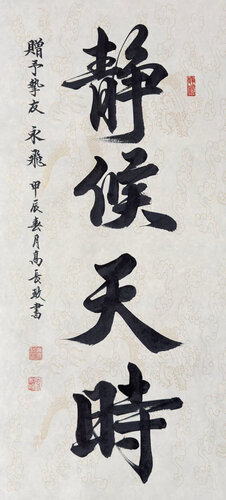 靜候天時
贈予摯友 永飛 甲辰春月高長致書